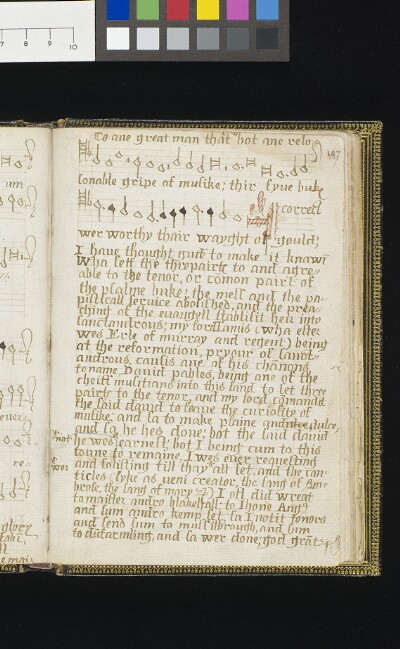 To ane great man that hot ane reso
187
sonable gripe of musike; thir fyue buke
correct
wer worthy thair wayght of gould;
I haue thought gud to make it knawn
Wha sett the thre pairts to and agre
able to the tenor, or comon pairt of
the psalme buke; the mess and the pa
pisticall seruice abolished, and the prea
ching of the euangell stablisit heir into
sanctandrous; my lord James (wha efter
wes Erle of murray and regent) being
at the reformation, pryour of sanct
androus, causis ane of his chanons,
to name Dauid pables, being ane of the
cheiff musitians into this land to set three
pairts to the tenor, and my lord comandit
the said dauid to leaue the curiosity of
musike, and sa to make plaine and dulce,
and sa he hes done; bot the said dauid
not he wes earnest; bot I being cum to this
toune to remaine, I wes euer requesting
wer and solisting till thay all set, and the can
ticles (lyke as ueni creator, the sang of Am
brose, the sang of mary) I oft did wreat
to maister andro blakehall; to Ihone Ang
and sum andro kemp set, sa I notit tenors
and send sum to mussilbrough, and sum
to dufarmling, and sa wer done; god grat
7 8 9 10
um
euer
re
glore